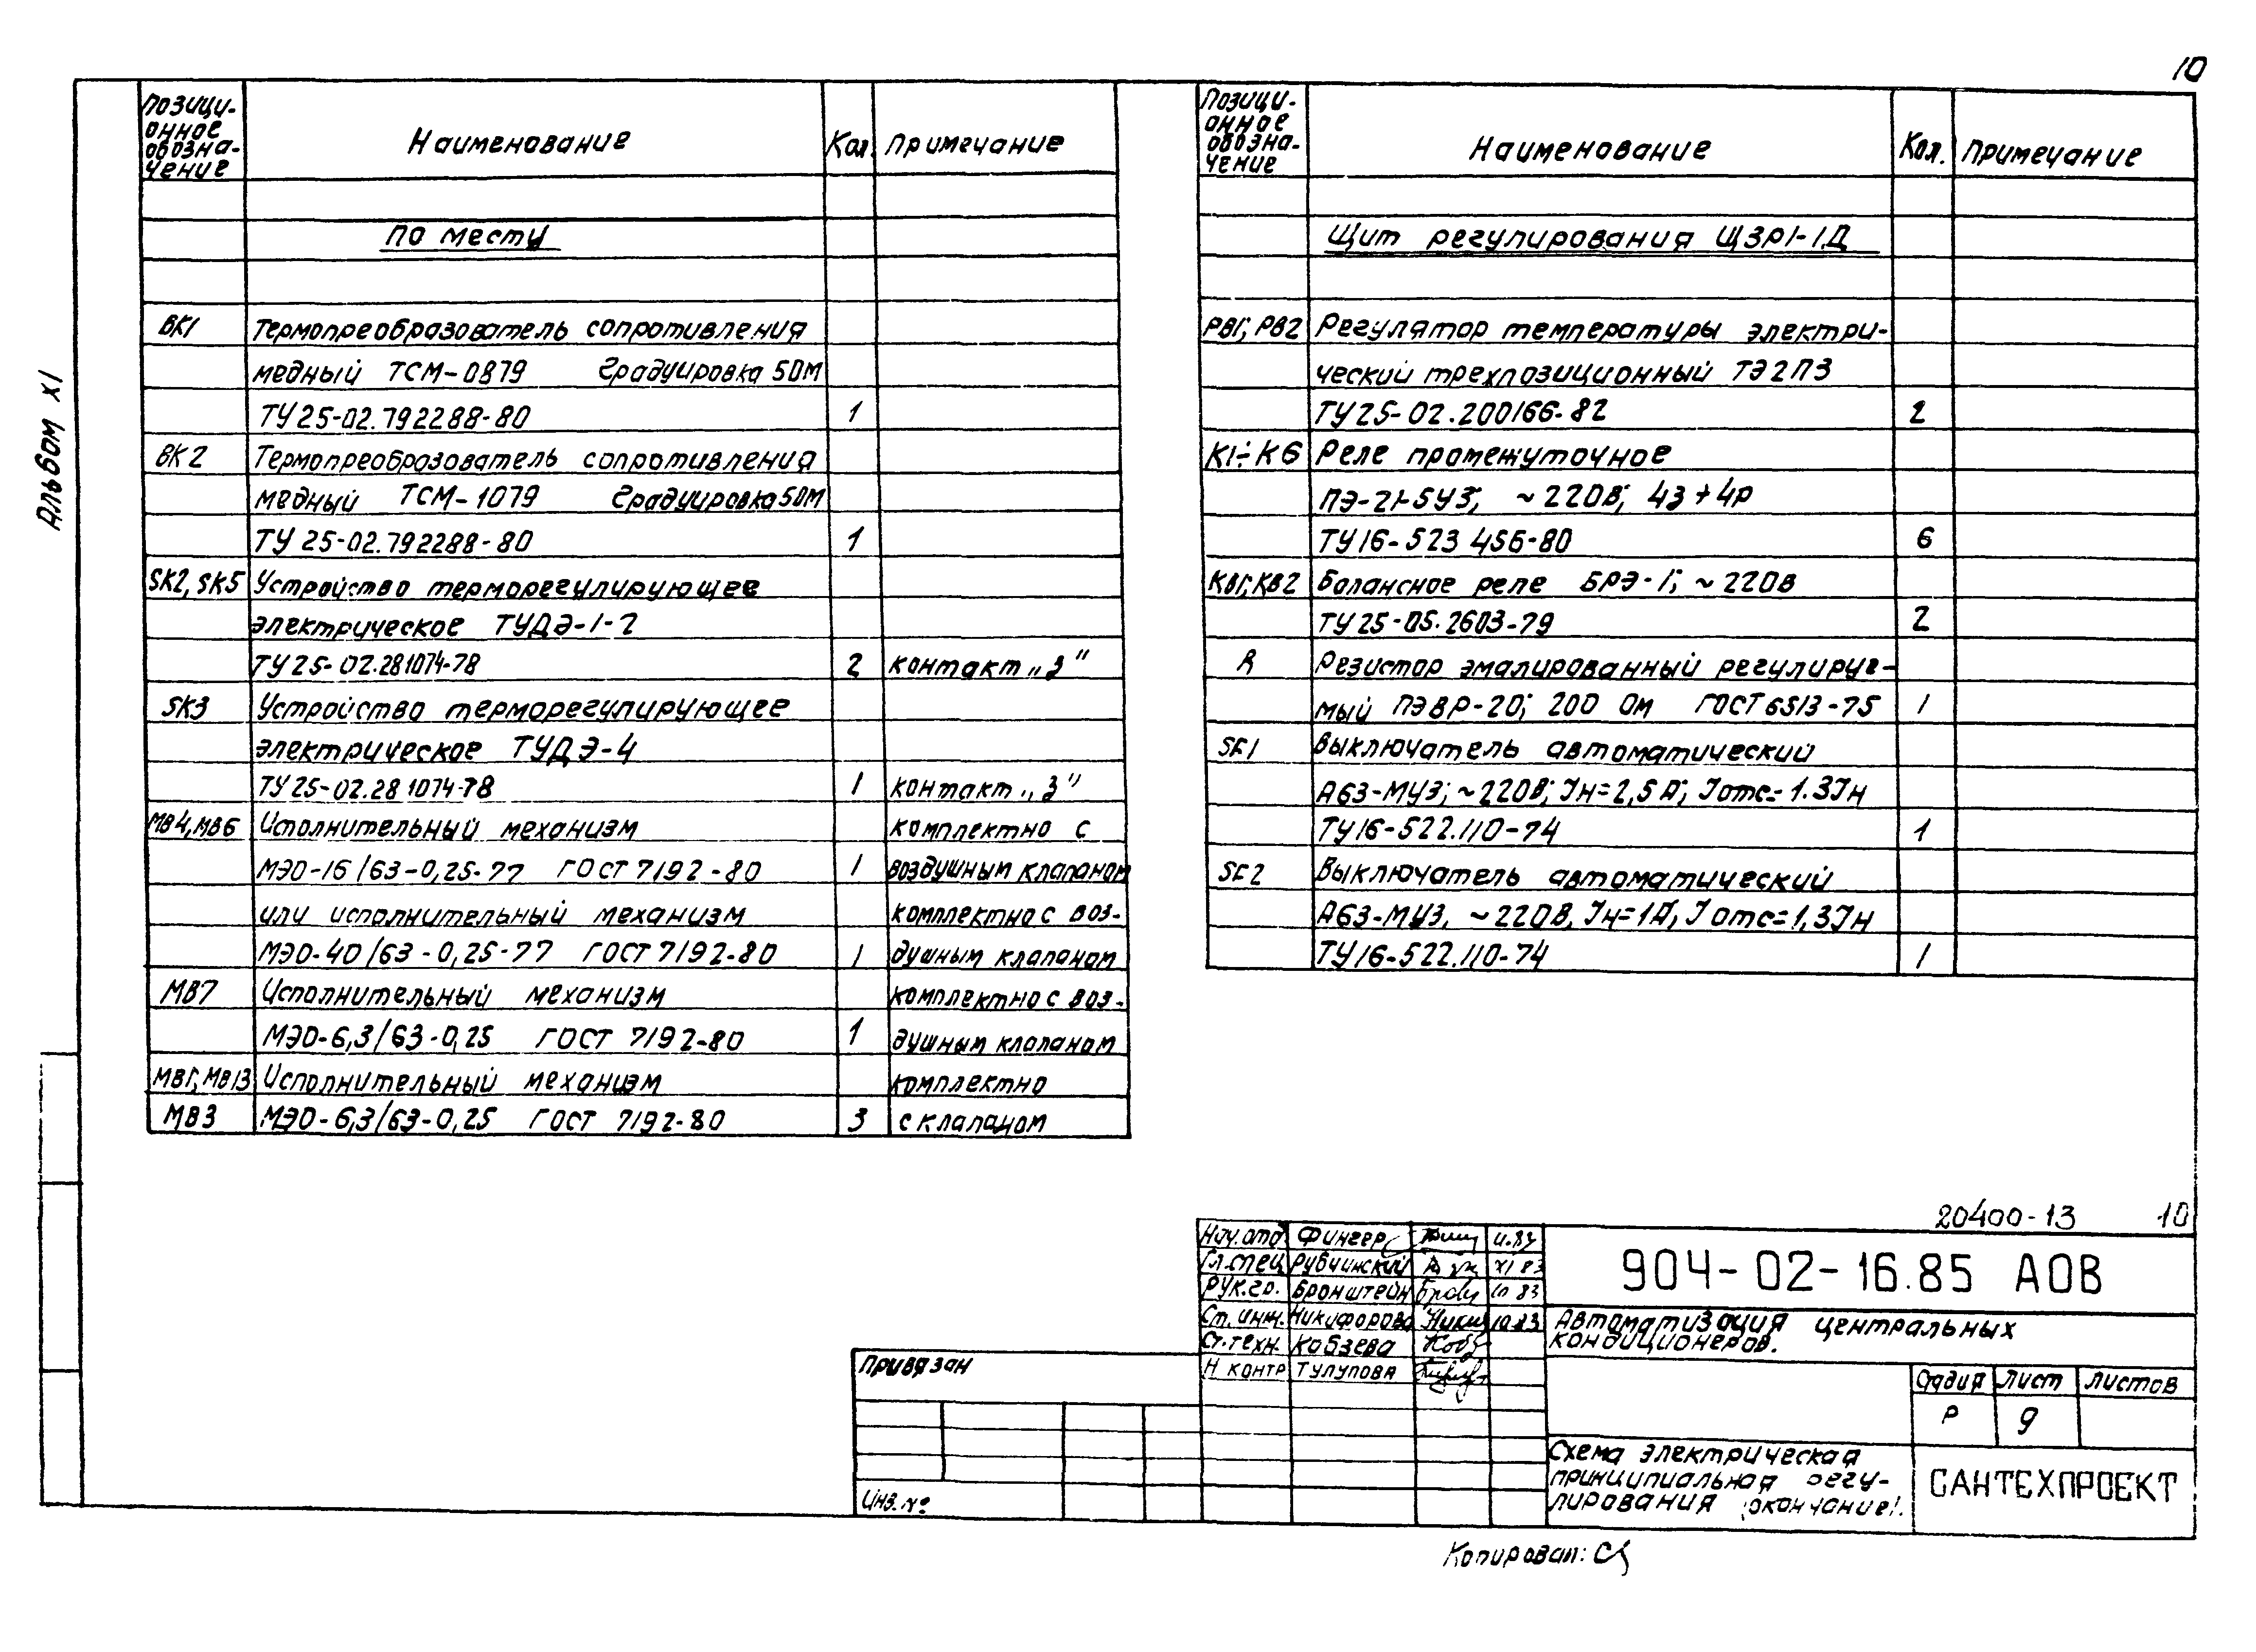 10
Альбом XI
Позици-
онное
обозна-
чение
Наименование
Кол.
Примечание
По месту
ВК1 Термопреобразователь сопротивления
медный ТСМ-0879 Градуировка 50М
ТУ 25-02.792288-80 1
ВК2 Термопреобразователь сопротивления
медный ТСМ-1079 Градуировка 50М
ТУ 25-02.792288-80 1
SK2, SK5 Устройство терморегулирующее
электрическое ТУДЭ-1-2
ТУ 25-02.281074-78 2 контакт „З"
SK3 Устройство терморегулирующее
электрическое ТУДЭ-4
ТУ 25-02.281074-78 1 контакт „З"
МВ4, МВ6 Исполнительный механизм комплектно с
МЭО-16/63-0,25-77 ГОСТ 7192-80 1 воздушным клапаном
или исполнительный механизм комплектно с воз-
МЭО-40/63-0,25-77 ГОСТ 7192-80 1 душным клапаном
МВ7 Исполнительный механизм комплектно с воз-
МЭО-6,3/63-0,25 ГОСТ 7192-80 1 душным клапаном
МВ1, МВ13 Исполнительный механизм комплектно
МВ3 МЭО-6,3/63-0,25 ГОСТ 7192-80 3 с клапаном
Позици-
онное
обозна-
чение
Наименование
Кол.
Примечание
Щит регулирования ЩЗР1-1.Д
РВ1; РВ2 Регулятор температуры электри-
ческий трехпозиционный ТЭ2П3
ТУ 25-02.200166-82 2
К1÷К6 Реле промежуточное
ПЭ-21-5У3; ~220В; 4з+4р
ТУ16-523 456-80 6
КВ1; КВ2 Балансное реле БРЭ-1; ~220В
ТУ 25-05.2603-79 2
R Резистор эмалированный регулируе-
мый ПЭВР-20; 200 Ом ГОСТ 6513-75 1
SF1 Выключатель автоматический
А63-МУ3; ~220В; Iн=2,5А; Iотс=1.3Iн
ТУ16-522.110-74 1
SF2 Выключатель автоматический
А63-МУ3, ~220В, Iн=1А; Iотс=1,3Iн
ТУ16-522.110-74 1
20400-13 10
Нач.отд. Фингер 11.83
Гл.спец. Рубчинский XI 83
Рук.гр. Бронштейн 10 83
Ст.инж. Никифорова 10.83
Ст.техн. Кобзева
Н контр Тулупова
904-02-16.85 АОВ
Автоматизация центральных
кондиционеров.
Стадия Лист Листов
Р 9
Схема электрическая
принципиальная регу-
лирования (окончание).
САНТЕХПРОЕКТ
Привязан
Инв.№
Копировал: